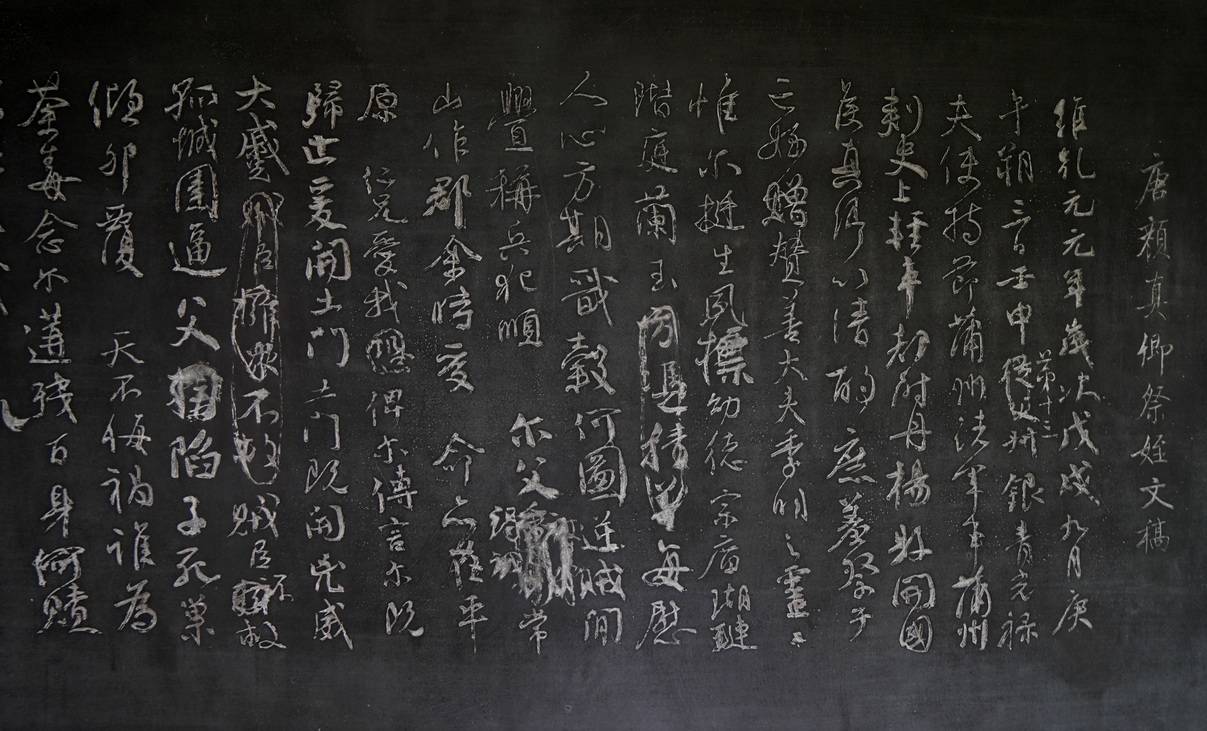 唐顏真卿祭姪文稿
維乾元元年歲次戊戌九月庚
午朔三日壬申第十三從父銀青光禄
夫使持節蒲州諸軍事蒲州
刺史上輕車都尉丹楊縣開國
侯真卿以清酌庶羞祭于
亡姪贈贊善大夫季明之靈曰
惟爾挺生夙標幼德宗廟瑚璉
階庭蘭玉每慰
人心方期戩穀何圖逆賊閒
釁稱兵犯順爾父竭誠常
山作郡余時受命亦在平
原仁兄愛我俾爾傳言爾既
歸止爰開土門土門既開兇威
大蹙賊臣不救
孤城圍逼父陷子死巢
傾卵覆天不悔禍誰為
荼毒念爾遘殘百身何贖